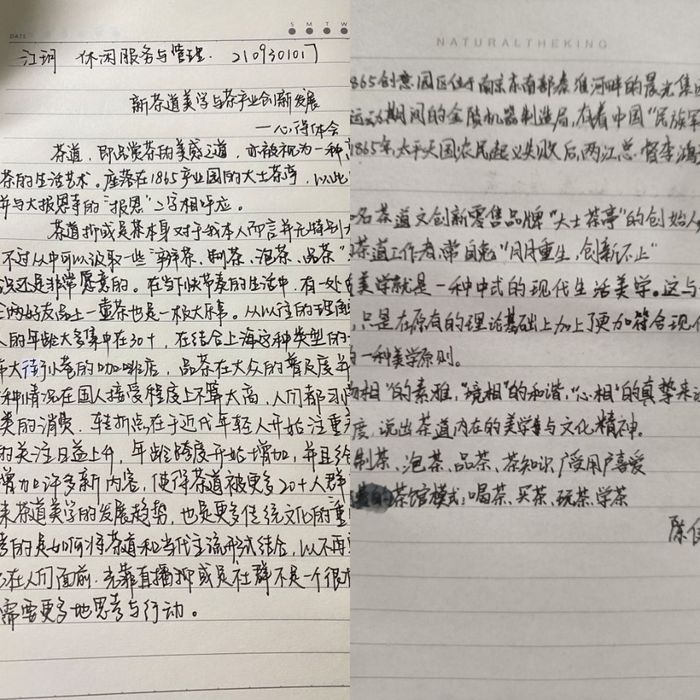 DATE
S M T W
江珂 休闲服务与管理. 210930107
新茶道美学与茶产业创新发展
—心得体会
茶道，即品赏茶的美感之道，亦被视为一种
茶的生活艺术。座落在1865产业园的大士茶亭，以此
并与大报恩寺的"报恩"二字相呼应。
茶道抑或是茶本身对于我本人而言并无特别大
不过从中可以汲取一些"弄茶、制茶、泡茶、品茶"
况还是非常愿意的。在当下快节奏的生活中，有一处
三两好友品上一壶茶也是一极大乐事。从以往的理
人的年龄大多集中在30+，在结合上海这种类型的
大街小巷的咖啡店，品茶在大众的普及度并
种情况在国人接受程度上不算太高，人们都习
类的消费。转折点在于近代年轻人开始注重
的关注日益上升，年龄跨度开始增加，并且给
增加许多新内容，使得茶道被更多20+人群
来茶道美学的发展趋势，也是更多传统文化的重
考的是如何将茶道和当代主流形式结合，以不再
在人们面前.光靠直播抑或是社群不是一个很
需要更多地思考与行动。
NATURALTHEKING
865创意园区位于南京东南部秦淮河畔的晨光集
运动期间的金陵机器制造局，有着中国"民族军
1865年，太平天国农民起义失败后，两江总督李鸿
一名茶道文创新零售品牌"大士茶亭"的创始人
茶道工作者，常自勉"月月重生，创新不止"
美学就是一种中式的现代生活美学。这与
,只是在原有的理论基础上加上了更加符合现代
的一种美学原则。
相"的素雅，"境相"的和谐，"心相"的真挚来
度，说出茶道内在的美学与文化精神。
制茶、泡茶、品茶、茶知识广受用户喜爱
的茶馆模式；喝茶、买茶、玩茶、学茶
陈